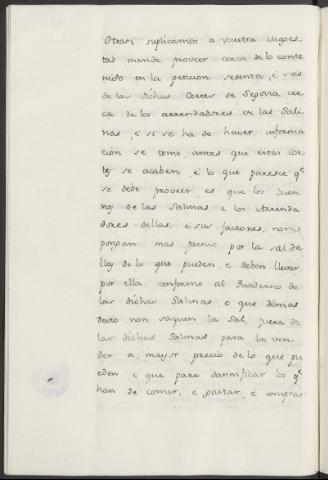 Otrosi suplicamos a vuestra mages-
tad mande proveer cerca de lo conte
nido en la peticion sesenta, é seis
de las dichas Cortes de Segovia cer
ca de los arrendadores de las Sali-
nas, é si se ha de haver informa
ción se tome antes que estas Cor
tes se acaben, é lo que paresce qe
se debe proveer, es que los Duen
nos de las Salinas e los Arrenda
dores dellas, é sus factores, non
pongan mas precio por la sal de
lo que pueden, e deben llevar
por ella conforme al Quaderno de
las dichas Salinas, e que demas
desto non saquen la Sal, fuera de
las dichas Salinas para la ven
der a, mayor precio de lo que pu
eden, e que para damnificar los qe
han de comer, e gastar, é comprar